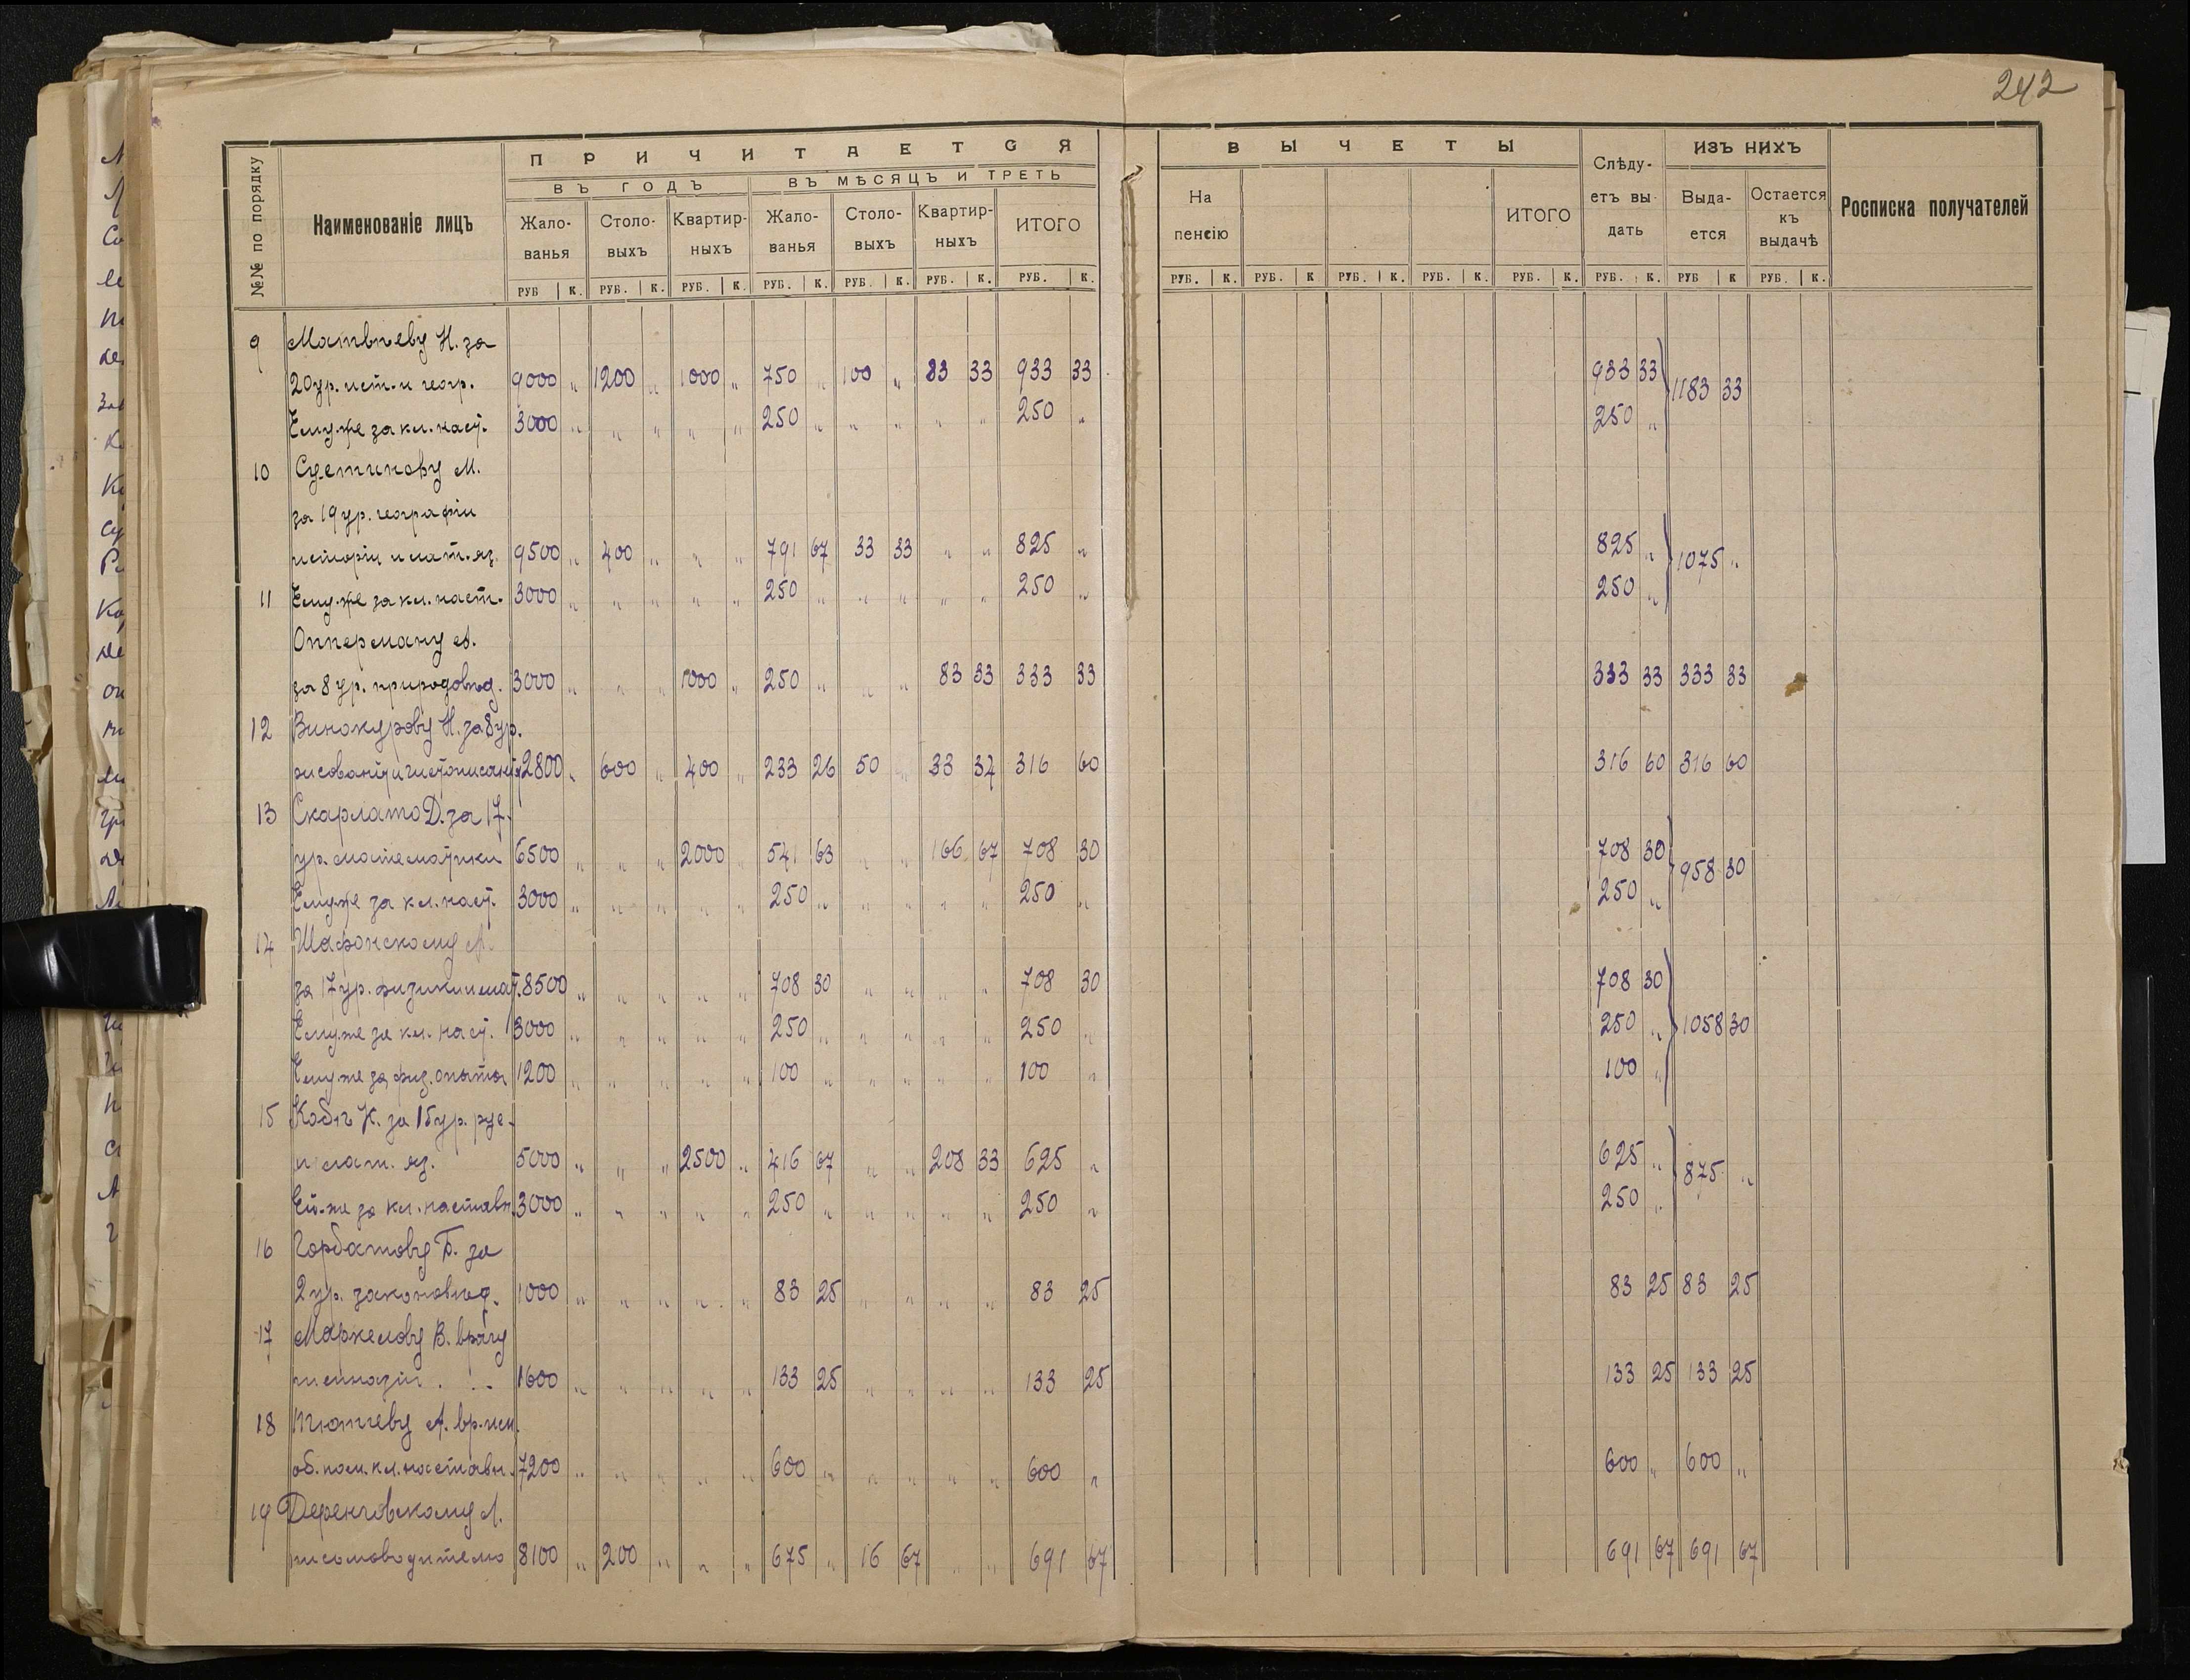 242
№№ по порядку
Наименованіе лицъ
ПРИЧИТАЕТСЯ
ВЪ ГОДЪ
ВЪ МѢСЯЦЪ И ТРЕТЬ
Жало-ванья Столо-выхъ Квартир-ныхъ Жало-ванья Столо-выхъ Квартир-ныхъ ИТОГО
РУБ К. РУБ. К. РУБ. К. РУБ. К. РУБ. К. РУБ. К. РУБ. К.
ВЫЧЕТЫ
На пенсію ИТОГО
Слѣду-етъ вы-дать
ИЗЪ НИХЪ
Выда-ется Остается къ выдачѣ
Росписка получателей
РУБ. К. РУБ. К РУБ. К. РУБ. К. РУБ. К. РУБ. К. РУБ К РУБ. К.
9 Матвѣеву Н. за
20 ур. ист. и геогр. 9000 „ 1200 „ 1000 „ 750 „ 100 „ 83 33 933 33 933 33 1183 33
Ему-же за кл. наст. 3000 „ „ „ „ „ 250 „ „ „ „ „ 250 „ 250 „
10 М.
за 19 ур. географіи
исторіи и лат. яз. 9500 „ 400 „ „ „ 791 67 33 33 „ „ 825 „ 825 „ 1075 „
11 Ему-же за кл. наст. 3000 „ „ „ „ „ 250 „ „ „ „ „ 250 „ 250 „
Опперману
за 8 ур. природовѣд. 3000 „ „ „ 1000 „ 250 „ „ „ 83 33 333 33 333 33 333 33
12 Винокурову Н. за 8 ур.
рисованія и чистописанія 2800 „ 600 „ 400 „ 233 26 50 „ 33 34 316 60 316 60 316 60
13 Скарлато Д. за 17
ур. математики 6500 „ „ „ 2000 „ 541 63 „ „ 166 67 708 30 708 30 958 30
Ему-же за кл. наст. 3000 „ „ „ „ „ 250 „ „ „ „ „ 250 „ 250 „
14 Шафонскому
за 17 ур. физики и мат. 8500 „ „ „ „ „ 708 30 „ „ „ „ 708 30 708 30
Ему-же за кл. наст. 3000 „ „ „ „ „ 250 „ „ „ „ „ 250 „ 250 „ 1058 30
Ему-же за физ. опыты 1200 „ „ „ „ „ 100 „ „ „ „ „ 100 „ 100 „
15 К. за 15 ур. рус.
и лат. яз. 5000 „ „ „ 2500 „ 416 67 „ „ 208 33 625 „ 625 „ 875 „
Ей-же за кл. наставн. 3000 „ „ „ „ „ 250 „ „ „ „ „ 250 „ 250 „
16 Горбатову Б. за
2 ур. законовѣд. 1000 „ „ „ „ „ 83 25 „ „ „ „ 83 25 83 25 83 25
17 Маркелову В. врачу
гимназіи 1600 „ „ „ „ „ 133 25 „ „ „ „ 133 25 133 25 133 25
18 А. вр. исп.
об. пом. кл. наставн. 7200 „ „ „ „ „ 600 „ „ „ „ „ 600 „ 600 „ 600 „
19 Деренговскому
письмоводителю 8100 „ 200 „ „ „ 675 „ 16 67 „ „ 691 67 691 67 691 67